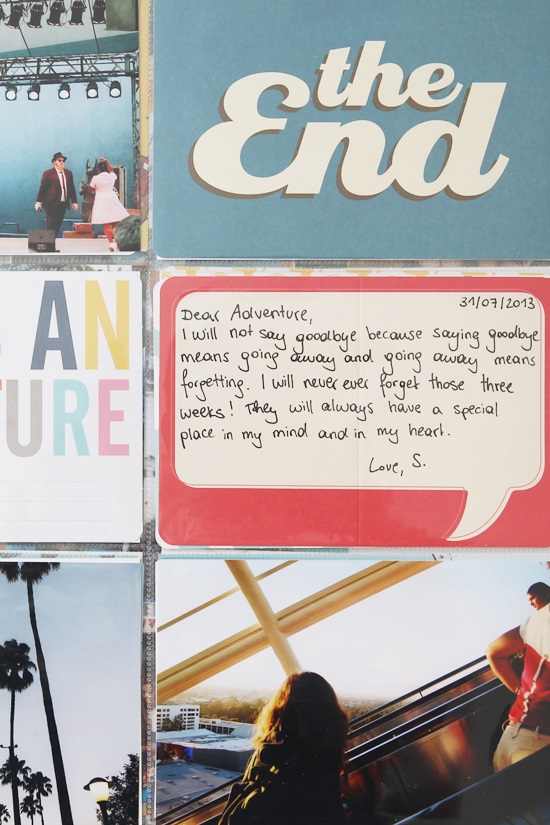 the
End
AN
TURE
31/07/2013
Dear Adventure,
I will not say goodbye because saying goodbye
means going away and going away means
forgetting. I will never ever forget those three
weeks! They will always have a special
place in my mind and in my heart.
Love, S.